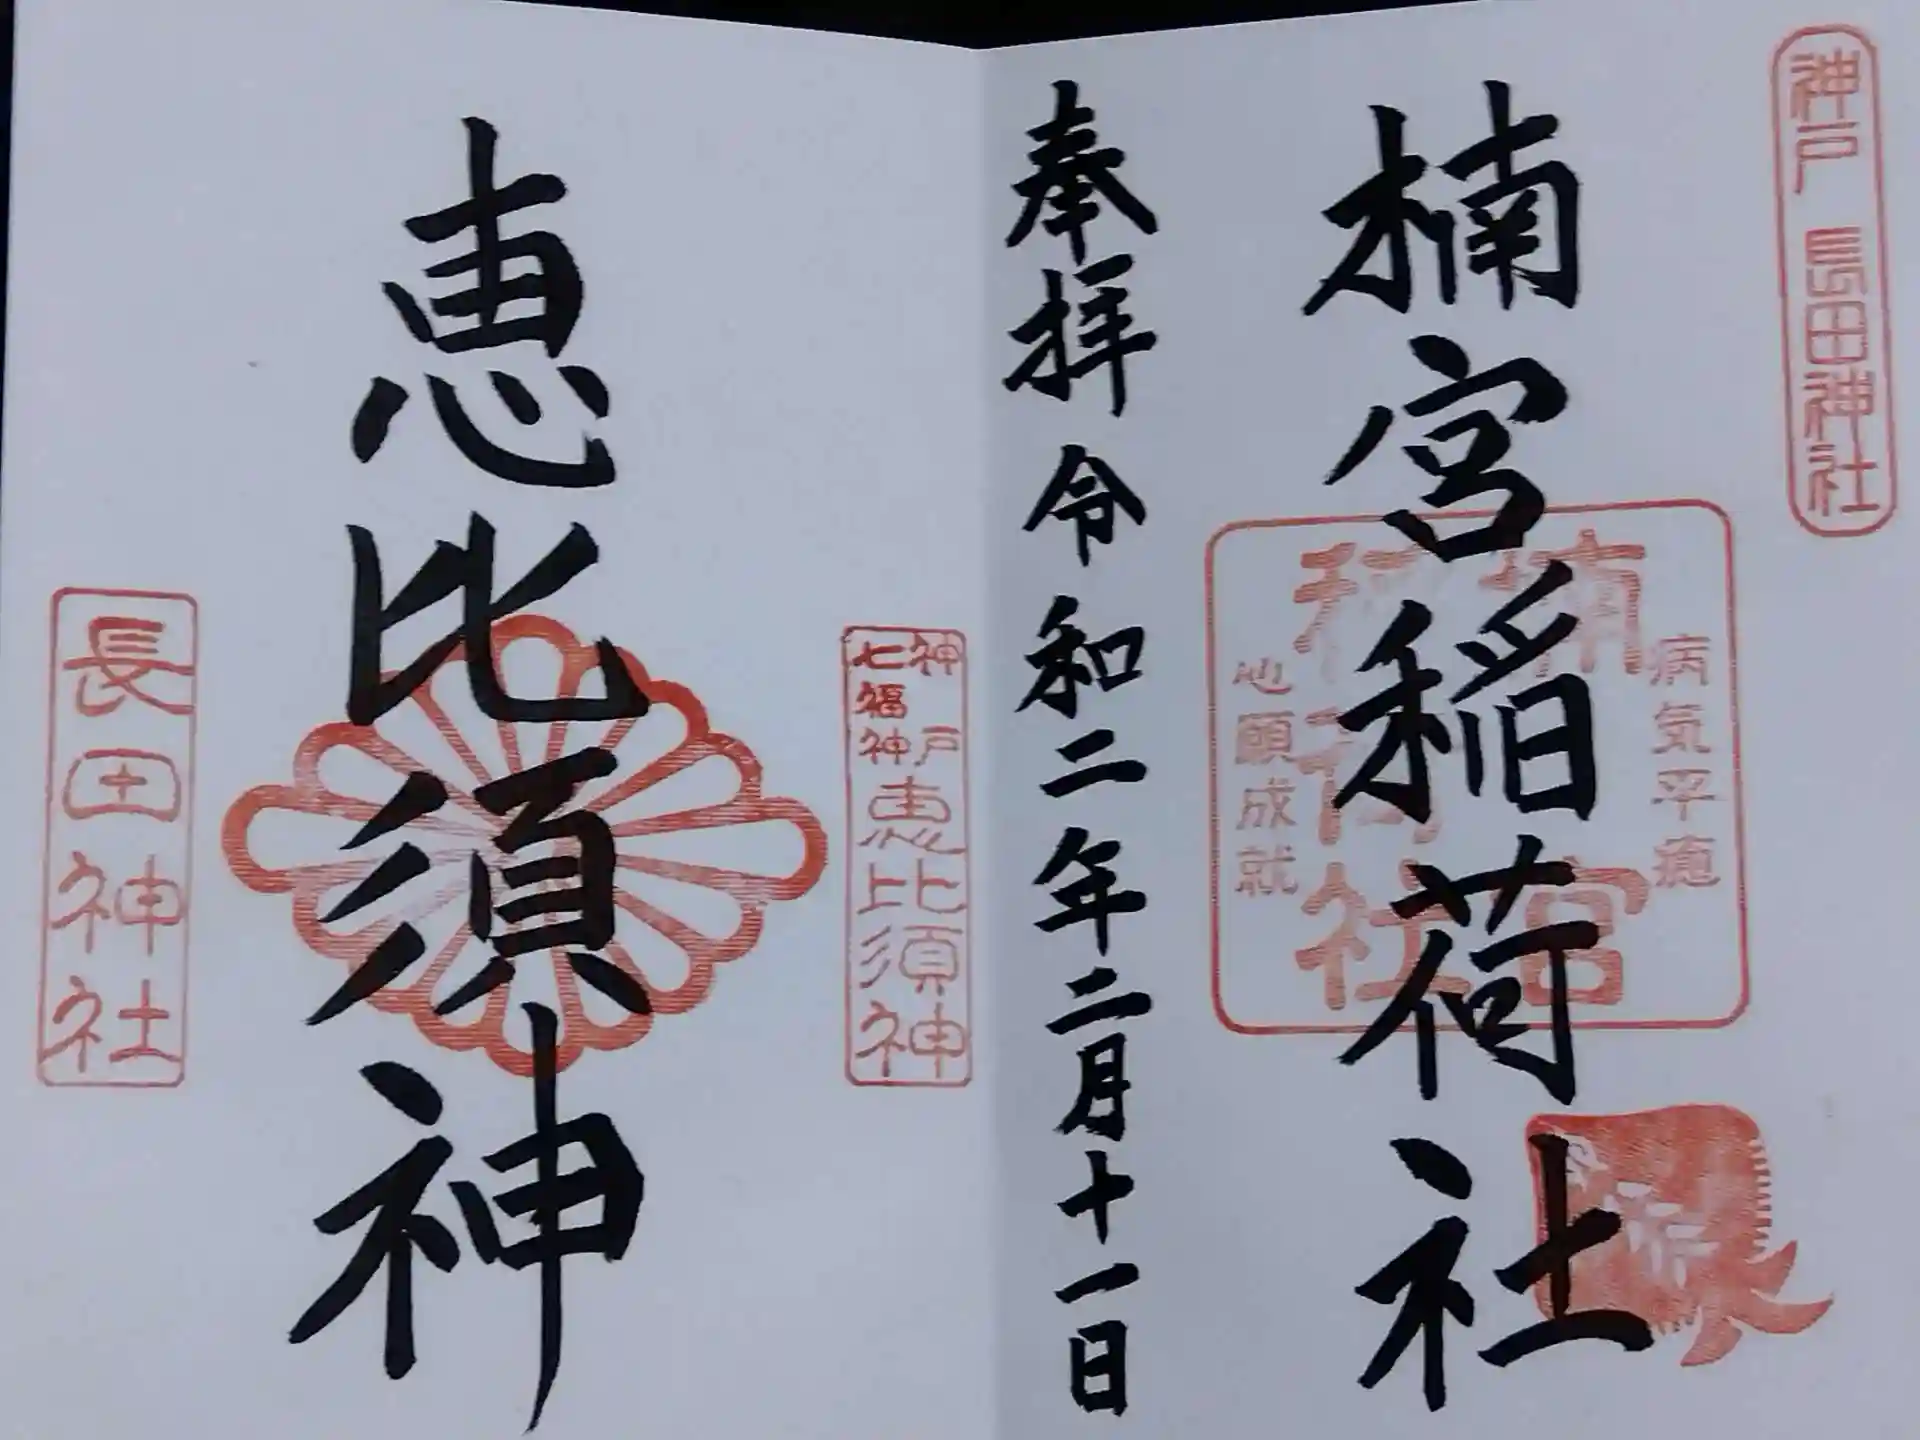 神戸 長田神社
楠宮稲荷社
病気平癒
楠宮
稲荷社
心願成就
奉拝 令和二年二月十一日
神戸
七福神
恵比須神
恵比須神
長田神社